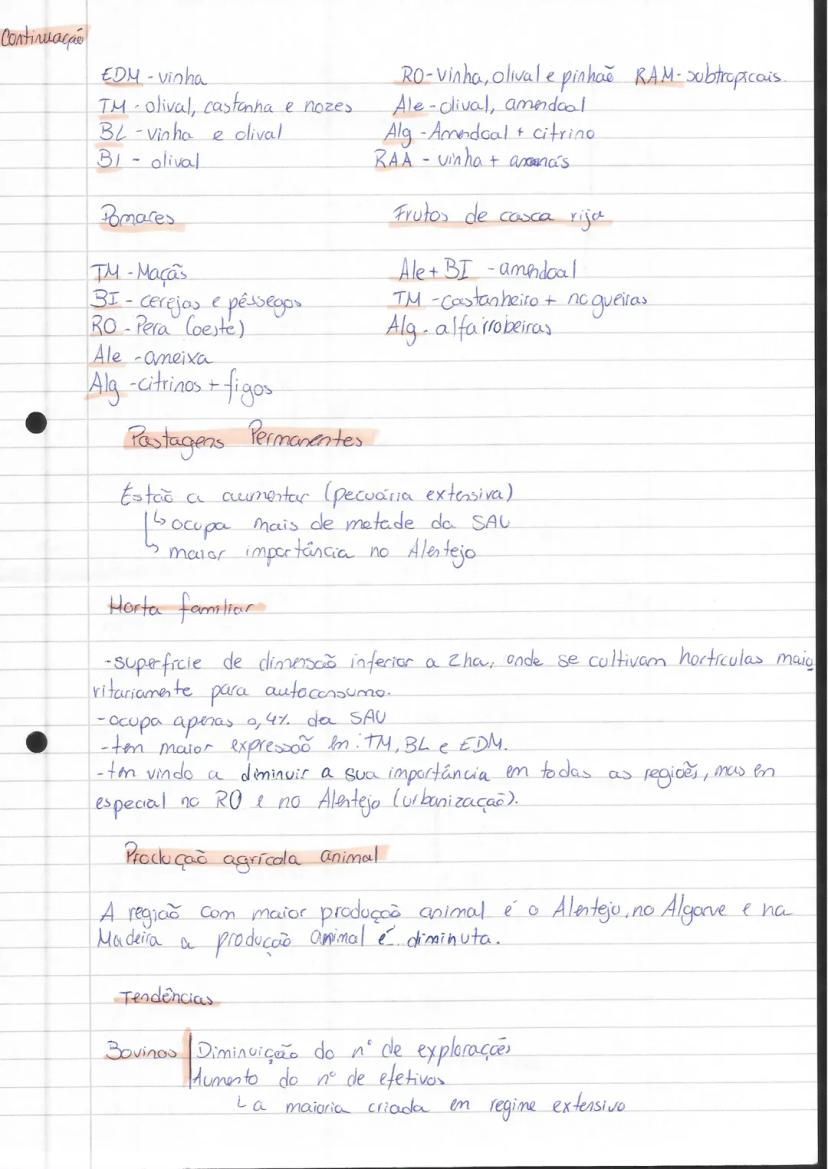 Continuação
EDM - vinha
TM - olival, castanha e nozes
BL - vinha e olival
BI - olival
RO - vinha, olival e pinhão RAM - subtropicais.
Ale - olival, amendoal
Alg - Amendoal + citrino
RAA - vinha + ananás
Pomares
TM - Maçãs
BI - cerejas e pêssegos
RO - Pera (oeste)
Ale - ameixa
Alg - citrinos + figos
Frutos de casca rija
Ale + BI - amendoal
TM - castanheiro + nogueiras
Alg - alfarrobeiras
Pastagens Permanentes
Estão a aumentar (pecuária extensiva)
↳ ocupa mais de metade da SAU
↳ maior importância no Alentejo
Horta familiar
- superfície de dimensão inferior a 2ha, onde se cultivam hortículas maio
ritariamente para autoconsumo.
- ocupa apenas 0,4% da SAU
- tem maior expressão em: TM, BL e EDM.
- tem vindo a diminuir a sua importância em todas as regiões, mas em
especial no RO e no Alentejo (urbanização).
Produção agrícola animal
A região com maior produção animal é o Alentejo, no Algarve e na
Madeira a produção animal é diminuta.
Tendências
Bovinos | Diminuição do nº de explorações
Aumento do nº de efetivos
↳ a maioria criada em regime extensivo